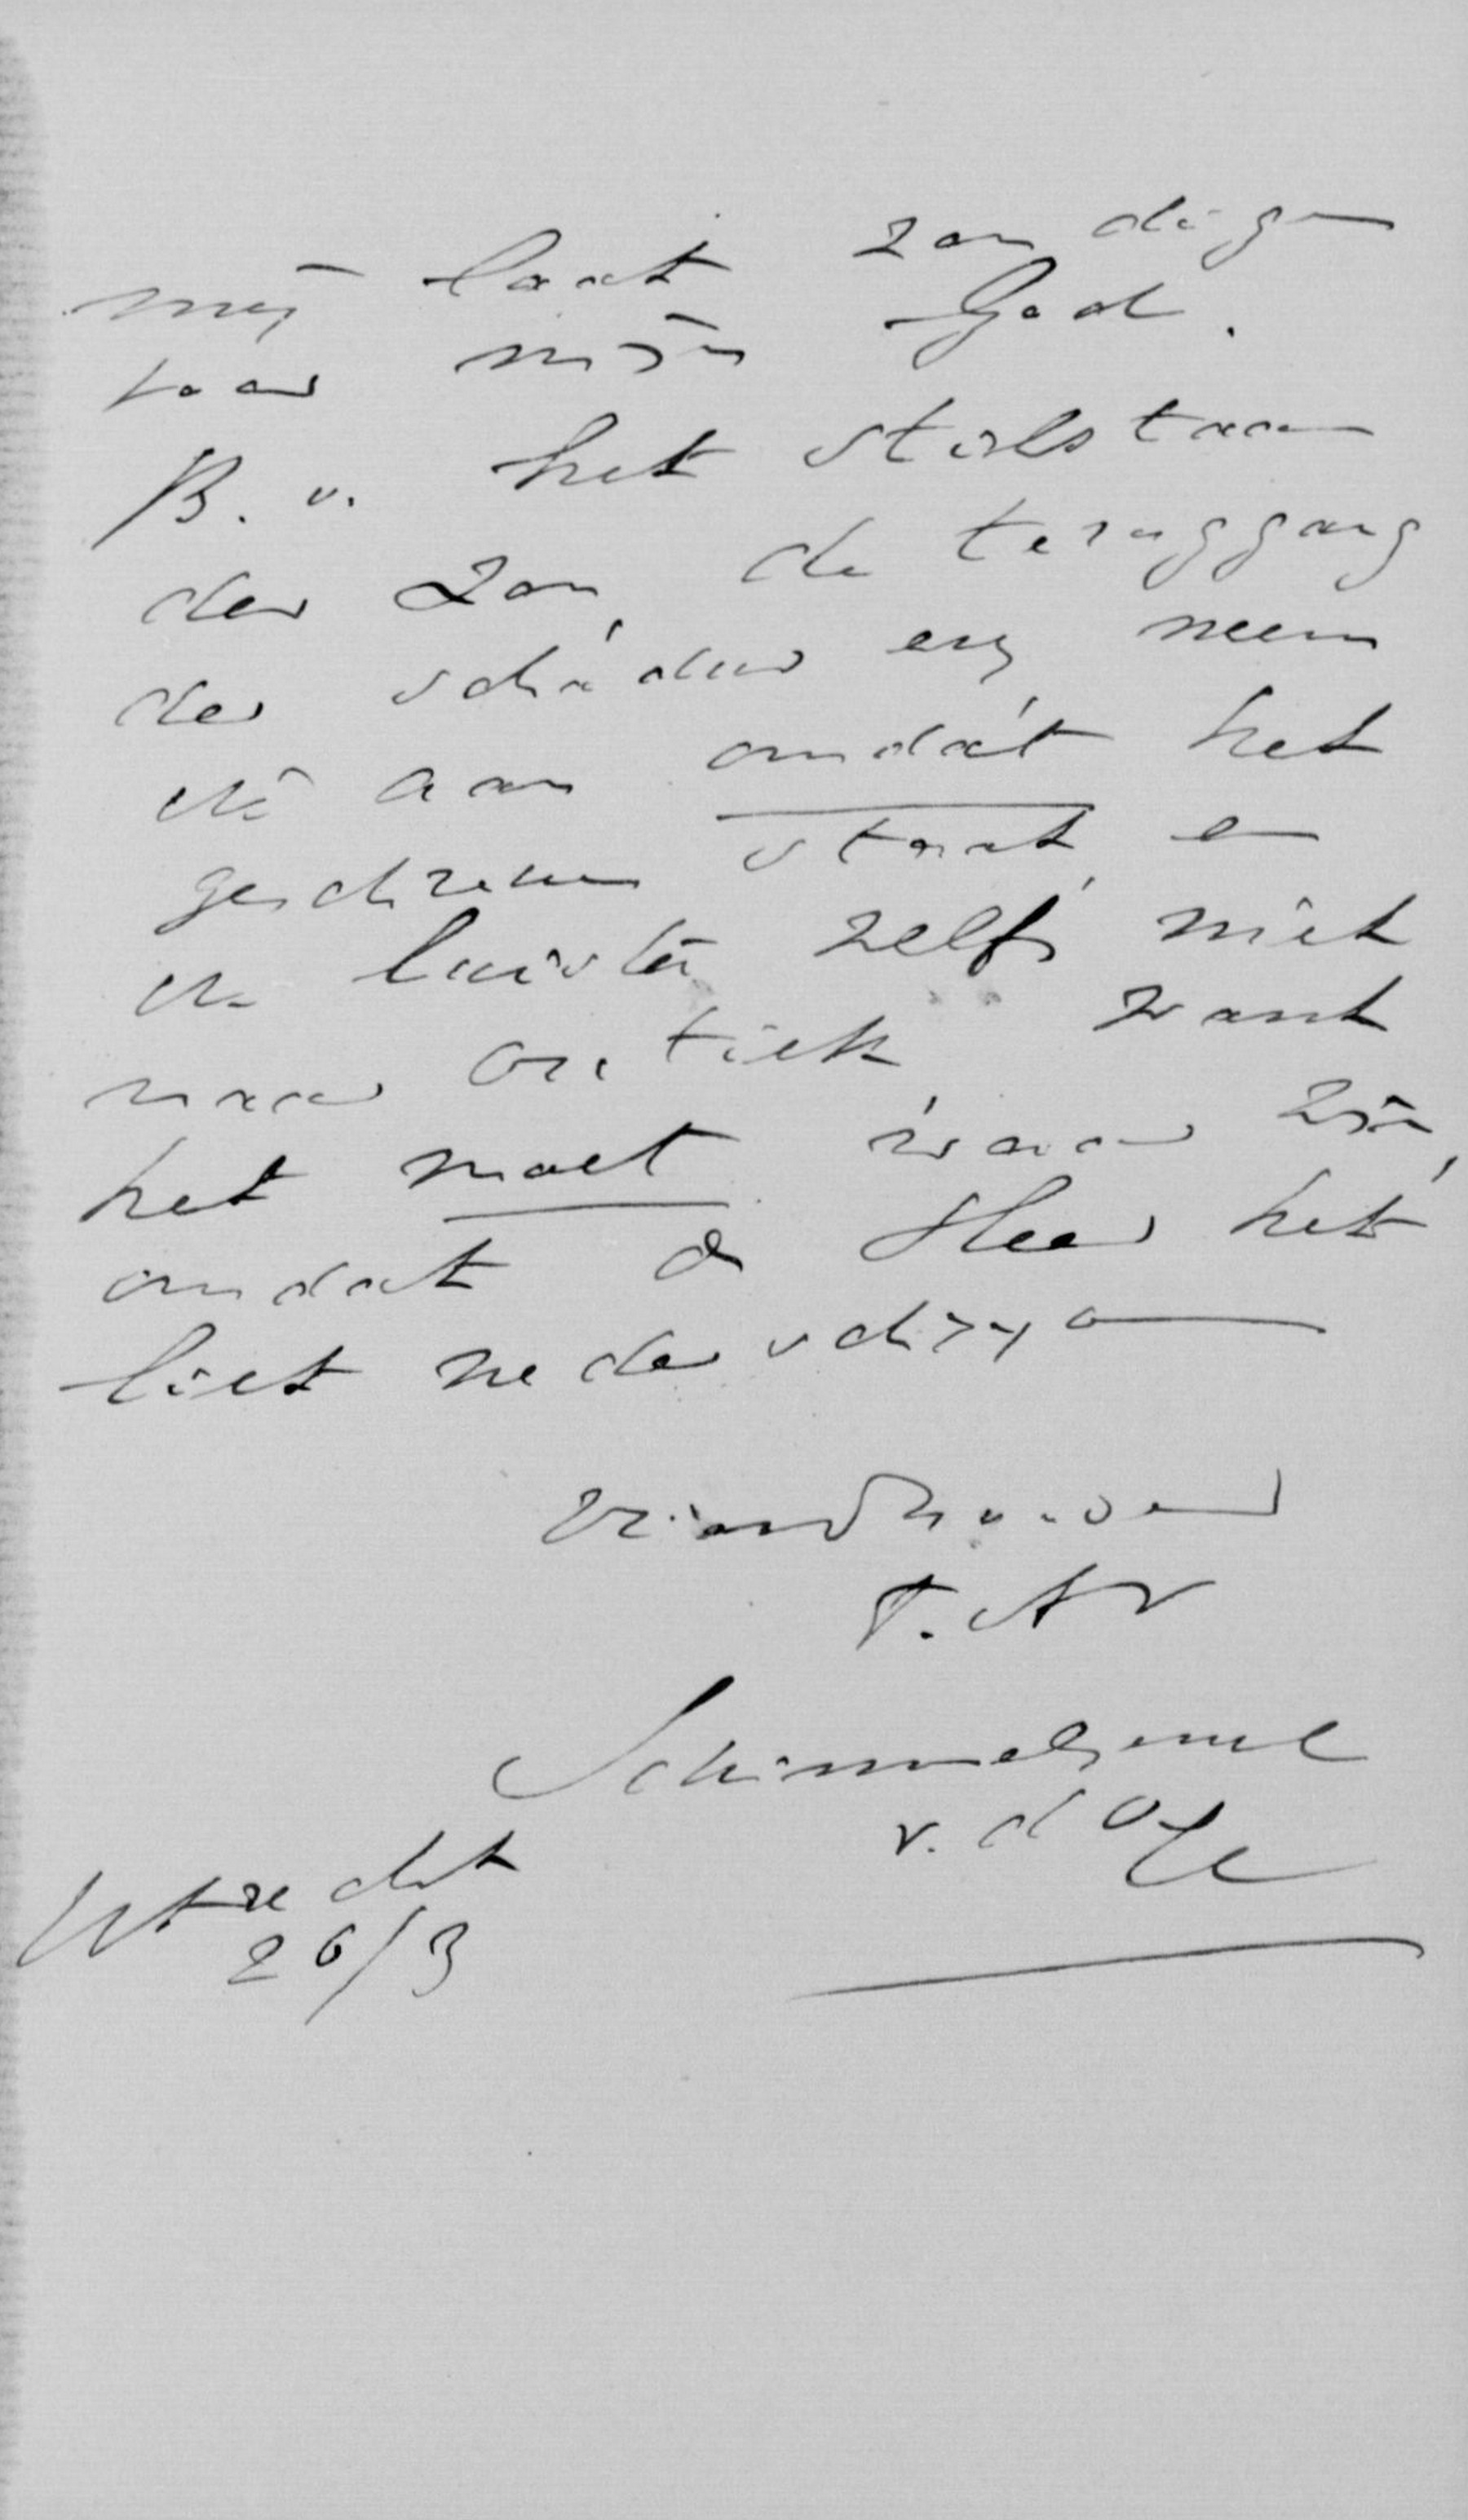 mij laat zondigen
voor mijn God.
B. v. het stilstaan
der zon, de teruggang
der schaduw enz neem
ik aan omdàt het
geschreven staat, en
ik luister zelfs niet
naar critiek, want
het moet waar zijn,
omdat de Heer het
liet nederschrijven
Vriendhoudend
T. AV
Schimmelpenn
v. d Oye
Utrecht
26/3